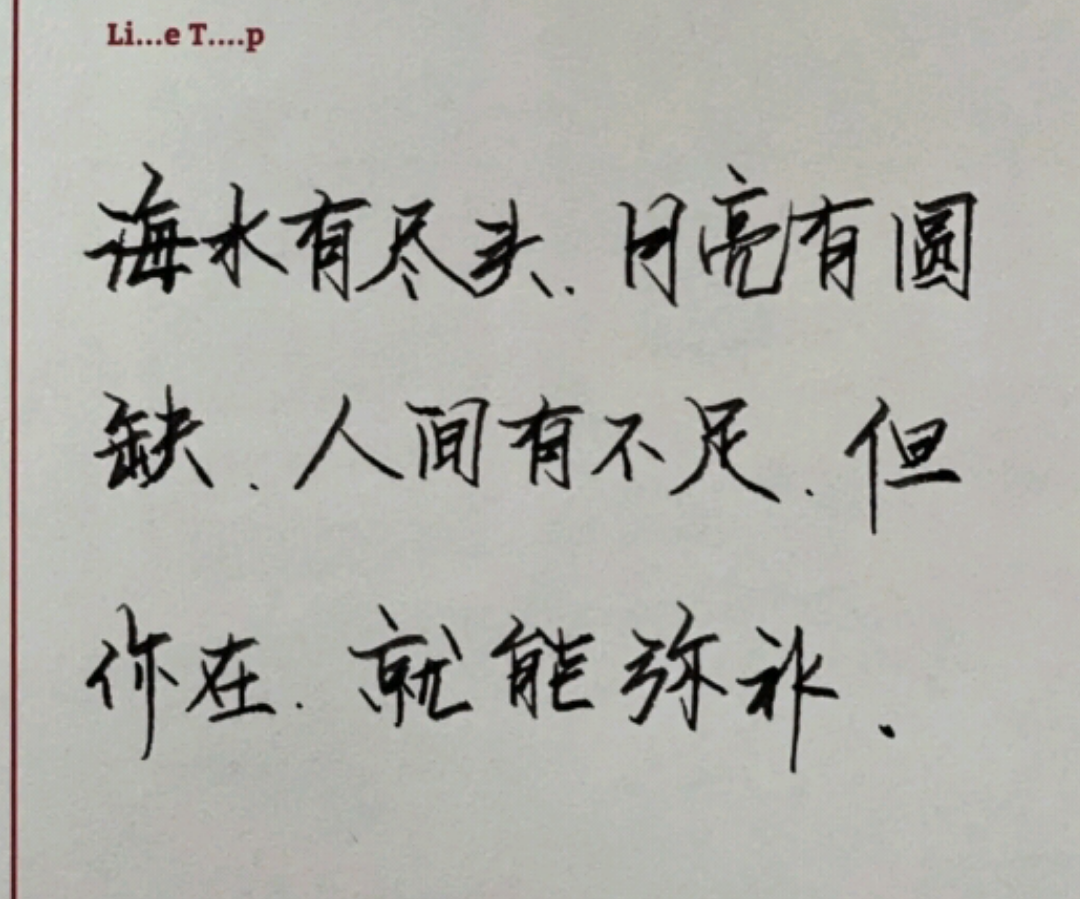 Li...e T....p
海水有尽头.月亮有圆
缺.人间有不足.但
你在.就能弥补.